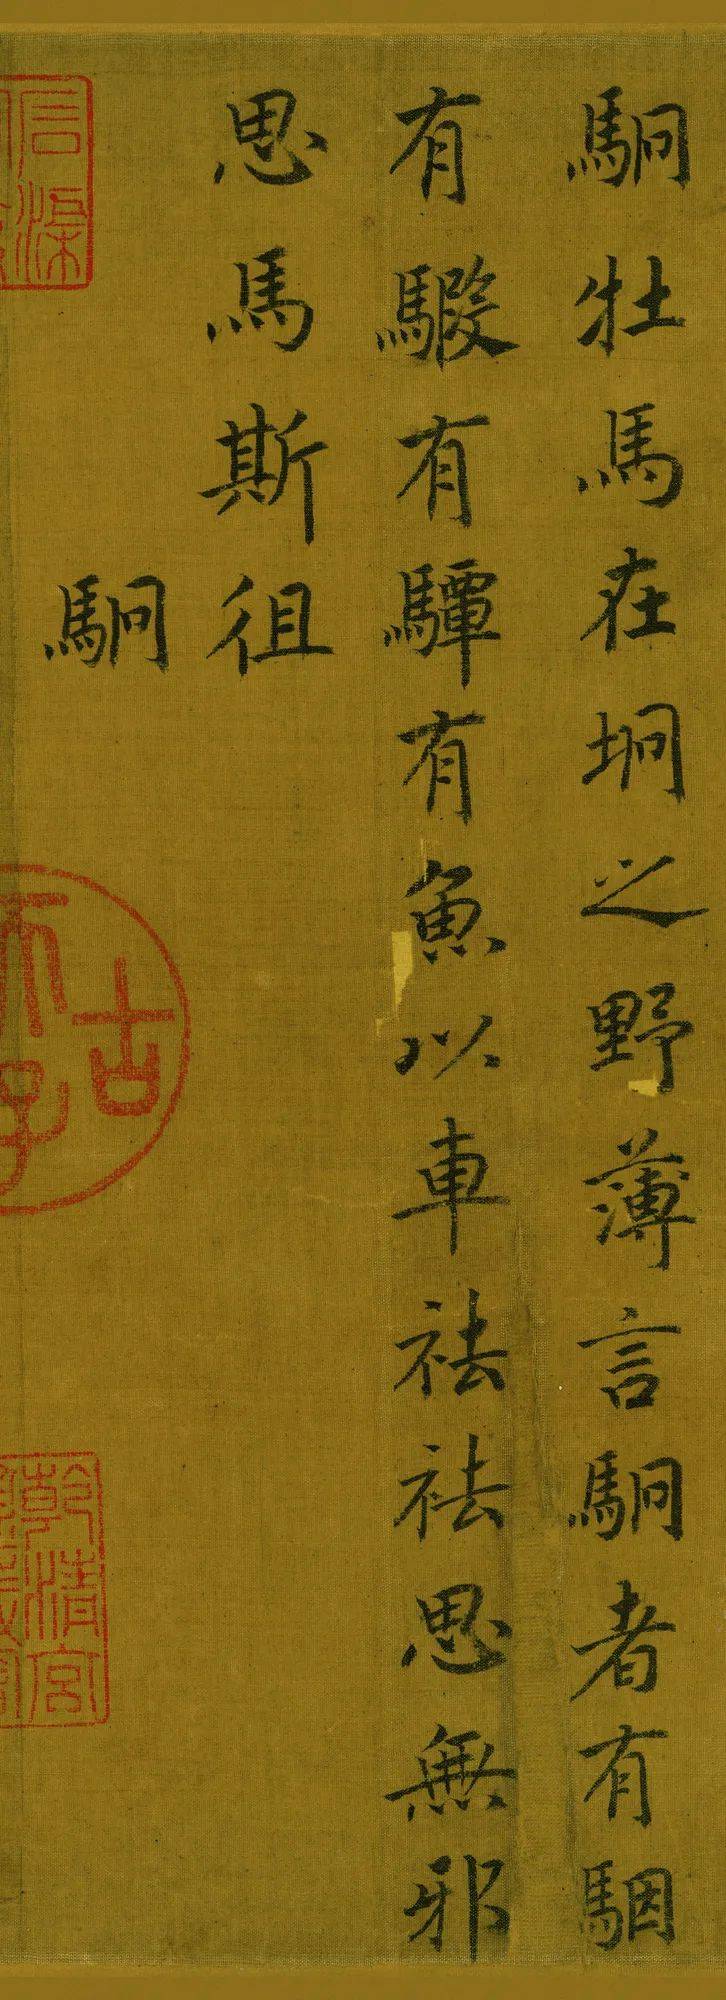 駉牡馬在坰之野薄言駉者有駰
有騢有驔有魚以車祛祛思無邪
思馬斯徂
駉
信
古
天子
乾清宮